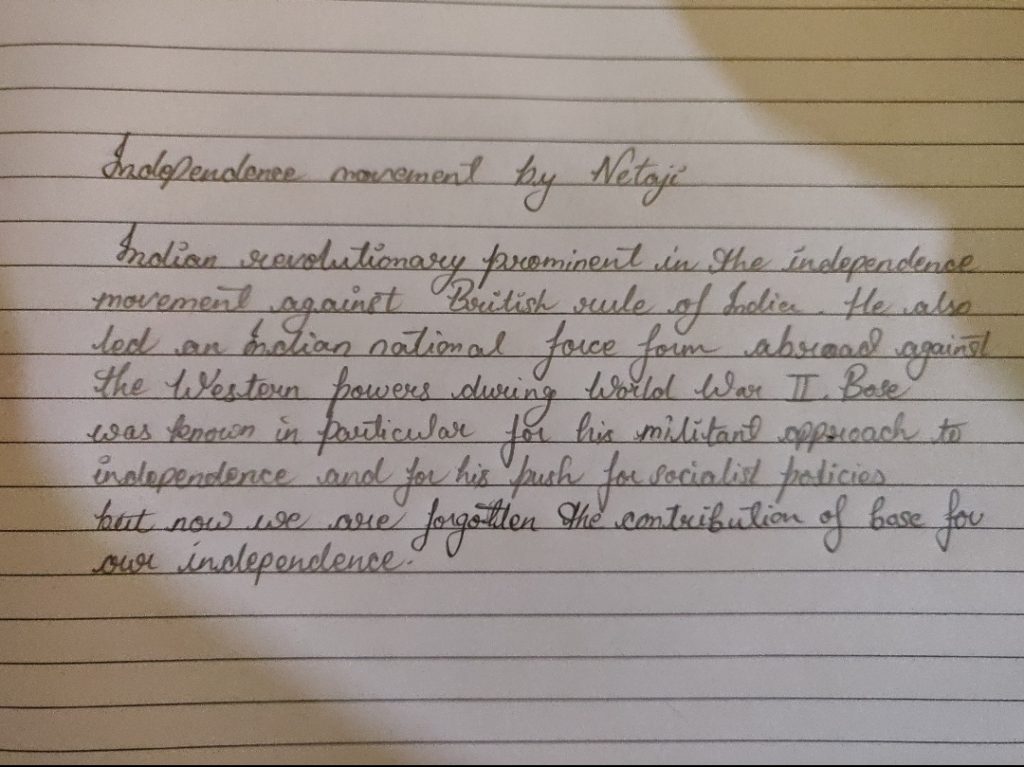 Independence movement by Netaji
Indian revolutionary prominent in the independence
movement against British rule of India. He also
led an Indian national force form abroad against
the Western powers during World War II. Bose
was known in particular for his militant approach to
independence and for his push for socialist policies
but now we are forgotten the contribution of bose for
our independence.